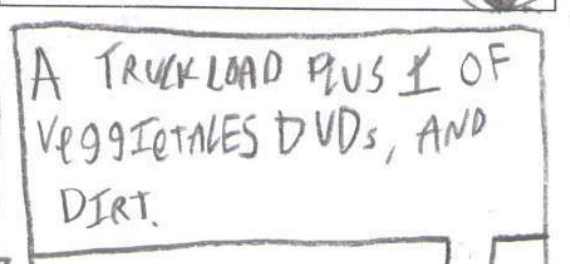 A TRUCKLOAD PLUS 1 OF
VeggIeTALES DVDs, AND
DIRT.